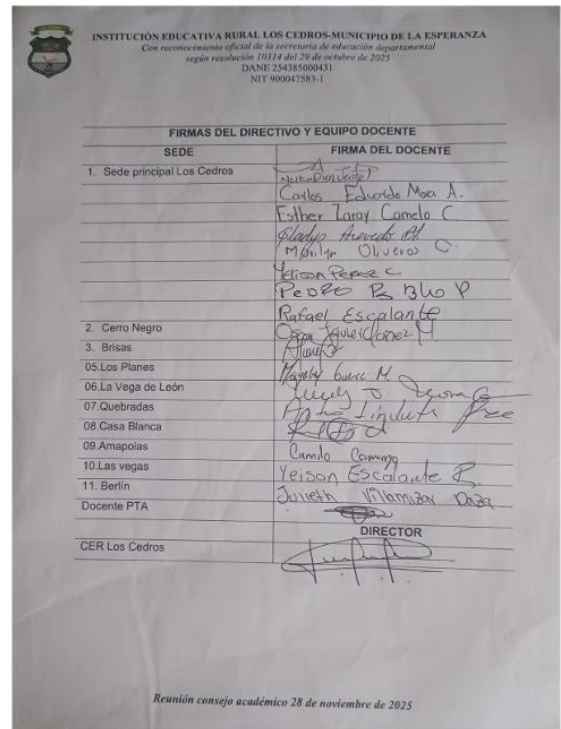 INSTITUCIÓN EDUCATIVA RURAL LOS CEDROS-MUNICIPIO DE LA ESPERANZA
Con reconocimiento oficial de la secretaria de educación departamental
según resolución 10314 del 29 de octubre de 2025
DANE 254385000431
NIT 900047583-1
FIRMAS DEL DIRECTIVO Y EQUIPO DOCENTE
SEDE FIRMA DEL DOCENTE
1. Sede principal Los Cedros
Carlos Eduardo Mora A.
Esther Zaray Camelo C
Gladys Acevedo
Oliveros C.
Yeison Perez C.
PEDRO
Rafael Escalante
2. Cerro Negro Gomez M.
3. Brisas
05.Los Planes M.
06.La Vega de León
07.Quebradas
08.Casa Blanca
09.Amapolas Camilo Camargo
10.Las vegas Yeison Escalante R.
11. Berlín Julieth Villamizar Daza
Docente PTA
DIRECTOR
CER Los Cedros
Reunión consejo académico 28 de noviembre de 2025